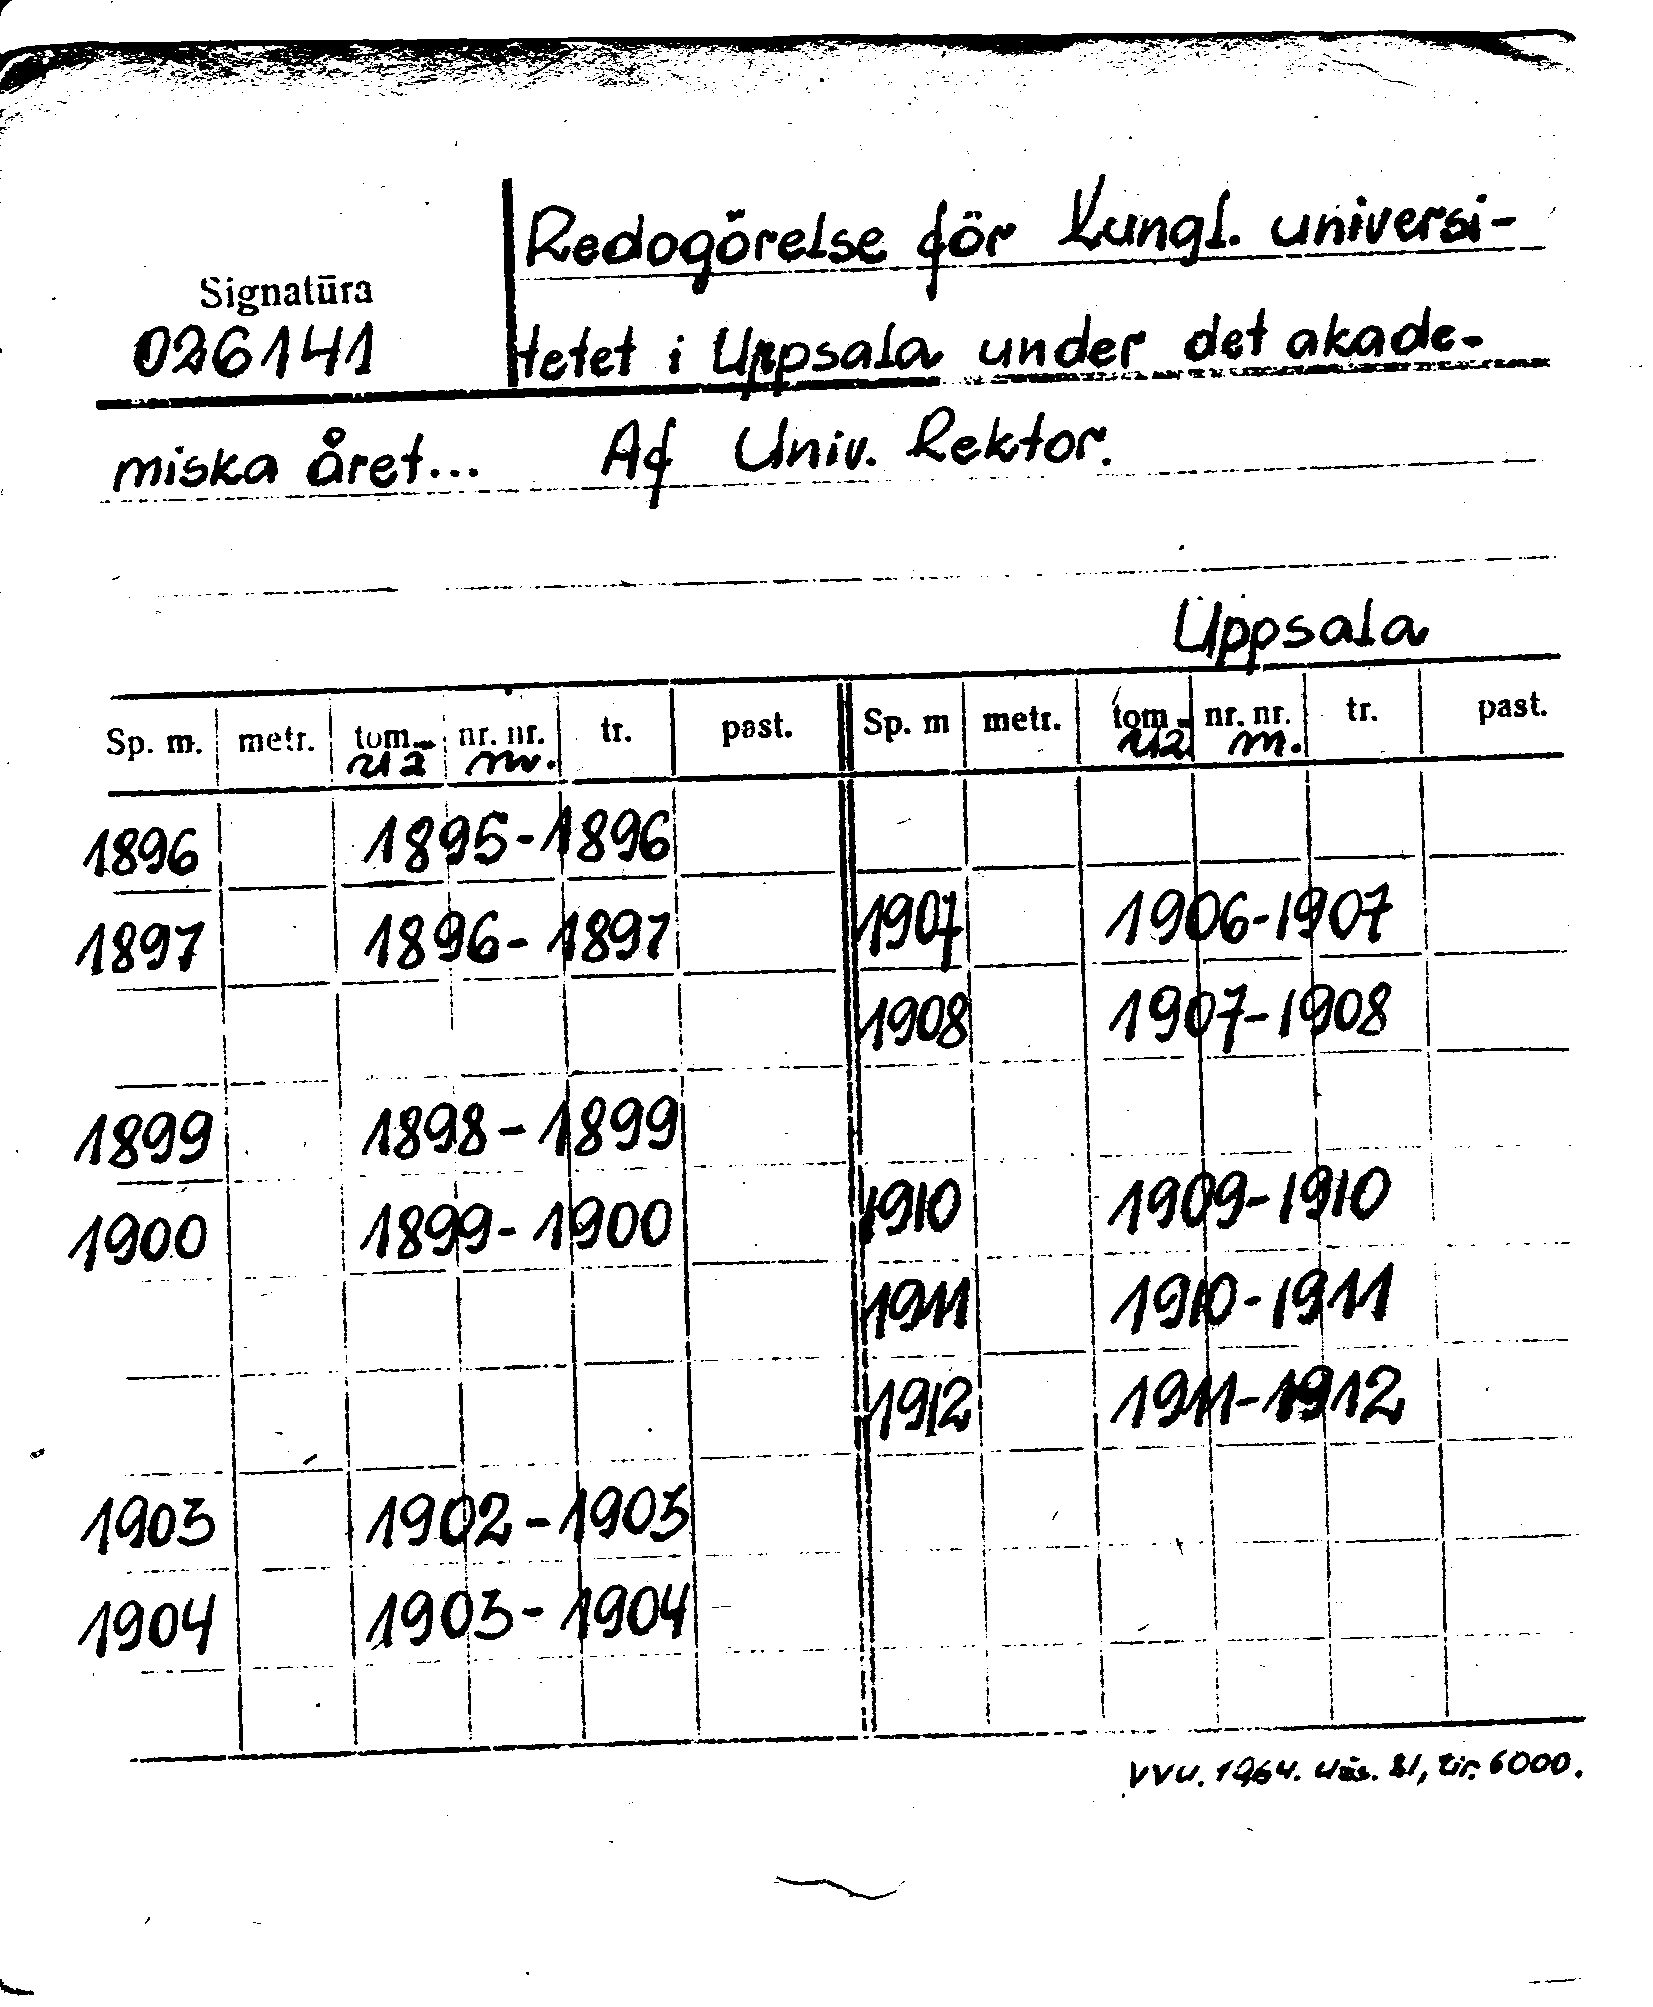 Redogörelse för Kungl. universi-
Signatūra
026141
tetet i Uppsala under det akade-
miska året... Af Univ. Rektor.
Uppsala
Sp. m. metr. tom. nr. nr. tr. past. Sp. m metr. tom nr. nr. tr. past.
1896 1895-1896
1897 1896-1897 1907 1906-1907
1908 1907-1908
1899 1898-1899
1900 1899-1900 1910 1909-1910
1911 1910-1911
1912 1911-1912
1903 1902-1903
1904 1903-1904
VVU. 1964. Užs. 81, tir. 6000.